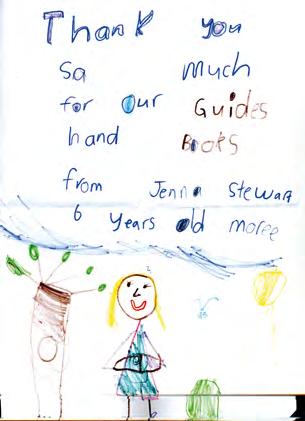 Thank you
sa much
for our Guides
hand Books
from Jenna Stewart
6 years old moree